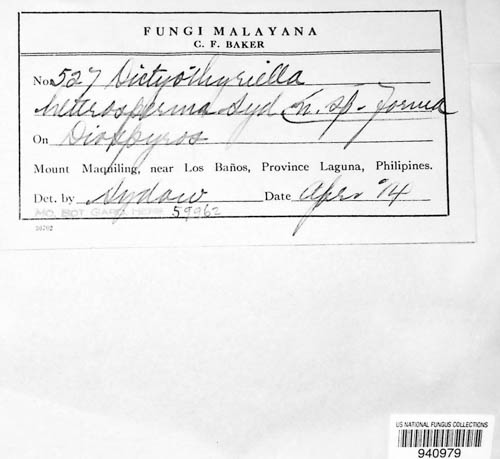 FUNGI MALAYANA
C. F. BAKER
No. 527 Dictyothyriella
heterosperma Syd n. sp. Forma
On Diospyros
Mount Maquiling, near Los Baños, Province Laguna, Philipines.
Det. by Sydow Date Apr. '14
MO. BOT. GARD. HERB. 59962
US NATIONAL FUNGUS COLLECTIONS
940979